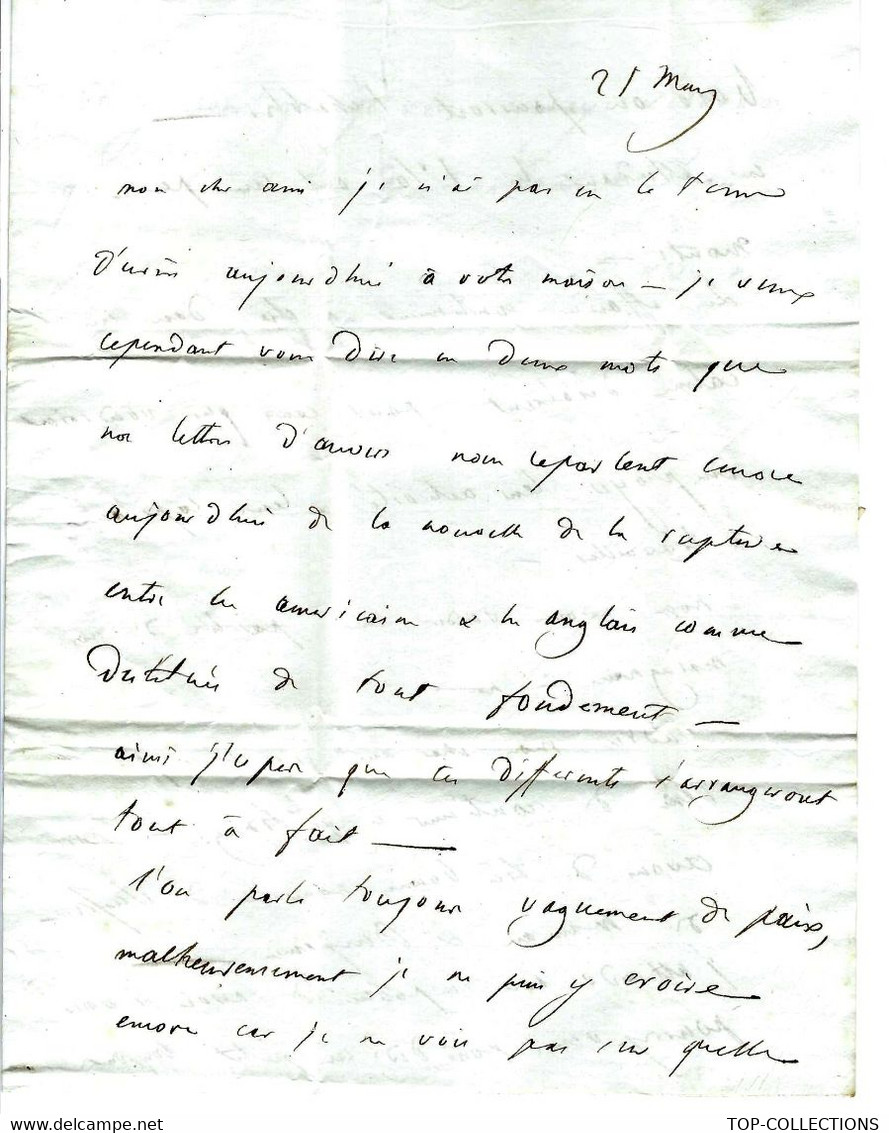 25 Mars
mon cher ami je n'ai pas eu le tems
d'ecrire aujourdhui à votre maison — je veux
cependant vous dire en deux mots que
nos lettres d'anvers nous reparlent encore
aujourdhui de la nouvelle de la rupture
entre les americains & les anglais comme
destituée de tout fondement —
ainsi j'espere que ces differents s'arrangeront
tout à fait —
l'on parle toujours vaguement de paix,
malheureusement je ne puis y croire
encore car je ne vois pas sur quelle
TOP-COLLECTIONS